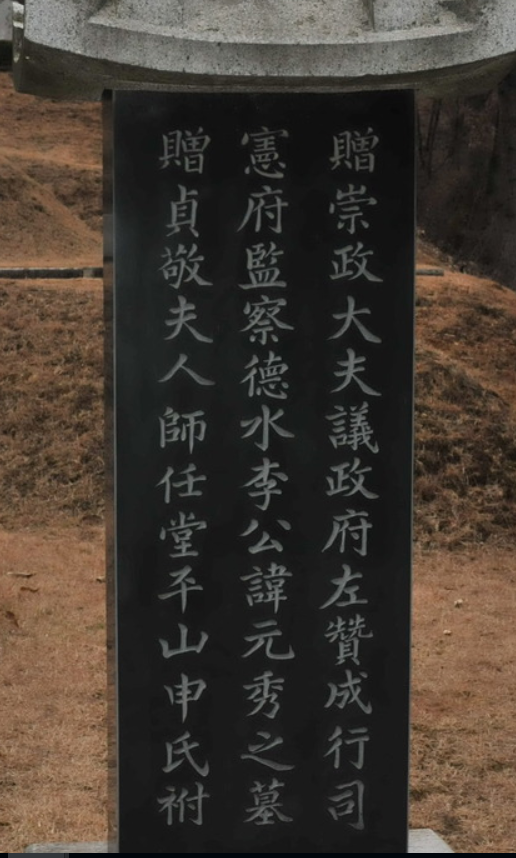 贈崇政大夫議政府左贊成行司
憲府監察德水李公諱元秀之墓
贈貞敬夫人師任堂平山申氏祔